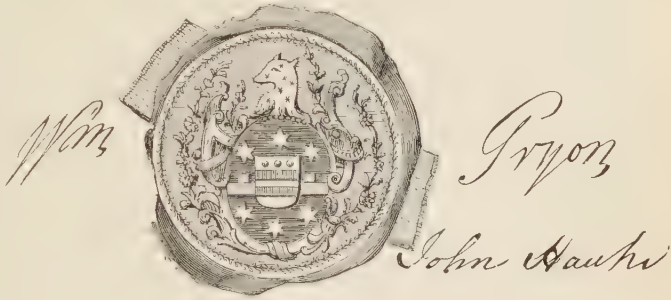 Wm Tryon
John Hawks